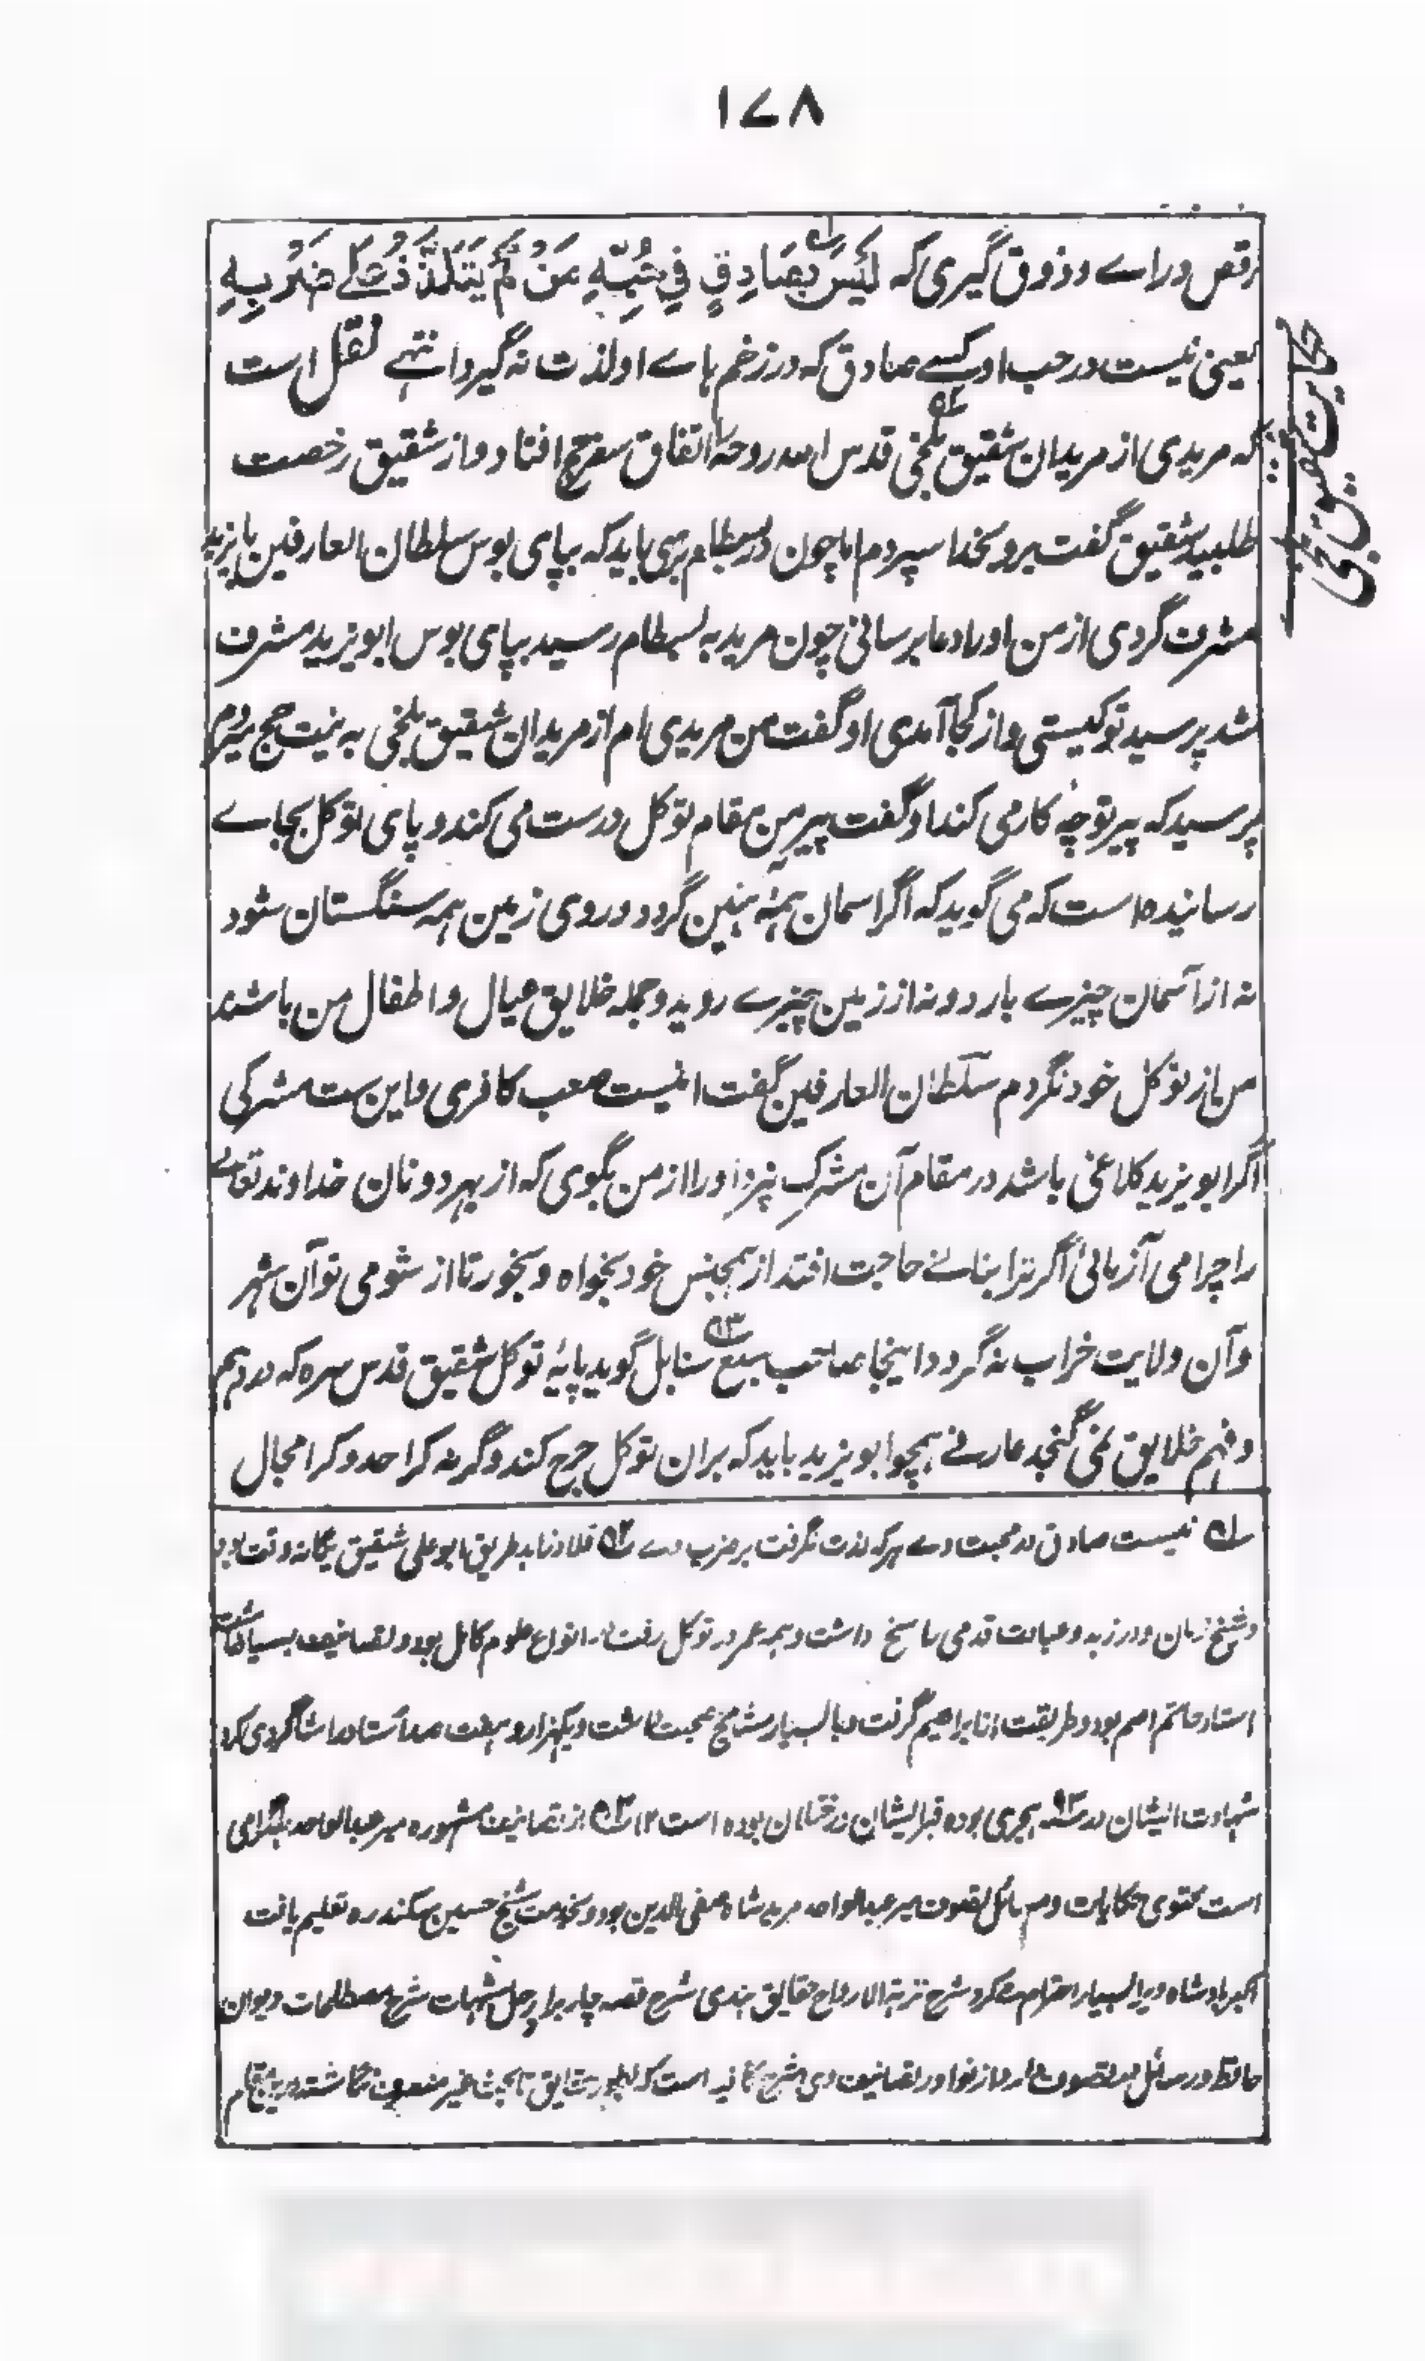 ۱۷۸
رقص در اے و ذوق گیری کہ لَیْسَ بِصَادِقٍ فِیْ حُبِّہٖ مَنْ لَمْ یَتَلَذَّذْ عَلٰے ضَرْبِہٖ
یعنی نیست در حب او کسے صادق کہ در زخم ہاے او لذت نہ گیرد انتہے نقل است
کہ مریدی از مریدان شقیق بلخی قدس اللہ روحہ را اتفاق سفر حج افتاد و از شقیق رخصت
طلبید شقیق گفت برو بخدا سپردم اما چون در بسطام برسی باید کہ بپای بوس سلطان العارفین بایزید
مشرف گردی از من او را دعا برسانی چون مرید بہ بسطام رسید بپای بوس ابویزید مشرف
شد پرسید تو کیستی و از کجا آمدی او گفت من مریدی ام از مریدان شقیق بلخی بہ نیت حج میروم
پرسید کہ پیر تو چہ کار می کند او گفت پیر من مقام توکل درست می کند و پای توکل بجاے
رسانیدہ است کہ می گوید کہ اگر اسمان ہمہ گردد و روی زمین ہمہ سنگستان شود
نہ از آسمان چیزے بارد و نہ از زمین چیزے روید و جملہ خلایق عیال و اطفال من باشند
من از توکل خود نگردم سلطان العارفین گفت اینست صعب کافری و این ست مشرکی
اگر ابویزید کلاغی باشد در مقام آن مشرک نپرد او را از من بگوی کہ از بہر دو نان خداوند تعالے
را چرا می آزمائی اگر ترا بنانے حاجت افتد از ہمجنس خود بخواہ و بخور تا از شومی تو آن شہر
و آن ولایت خراب نہ گردد اینجا صاحب سبع سنابل گوید پایۂ توکل شقیق قدس سرہ کہ در وہم
و فہم خلایق نمی گنجد عارفے ہمچو ابویزید باید کہ بران توکل جرح کند وگرنہ کرا حد و کرا مجال
حکایت شقیق بلخی
۱؎ نیست صادق در محبت وے ہر کہ لذت نگرفت بر ضرب وے ۲؎ ابو علی شقیق یگانہ وقت بود
و شیخ زمان و در زہد و عبادت قدمی راسخ داشت و ہمہ عمر در توکل رفت در انواع علوم کامل بود و تصانیف بسیار داشت
استاد حاتم اصم بود و طریقت از ابراہیم گرفت و با بسیار مشایخ صحبت داشت و یکہزار و ہفت صد استاد را شاگردی کرد
شہادت ایشان در ہجری بودہ قبر ایشان در ختلان بودہ است ۱۲ ۳؎ از تصانیف مشہورہ میر عبدالواحد بلگرامی
است محتوی حکایات و مسائل تصوف میر عبدالواحد مرید شاہ صفی الدین بود و بخدمت شیخ حسین سکندرہ تعلیم یافت
اکبر بادشاہ ویرا بسیار احترام می کرد شرح نزہۃ الارواح حقایق ہندی شرح قصہ چار برادر حل شبہات شرح مصطلحات دیوان
حافظ و رسائل در تصوف دارد از نوادر تصانیف وی شرح کافیہ است کہ بطور حقایق تا بحث غیر منصرف نگاشتہ